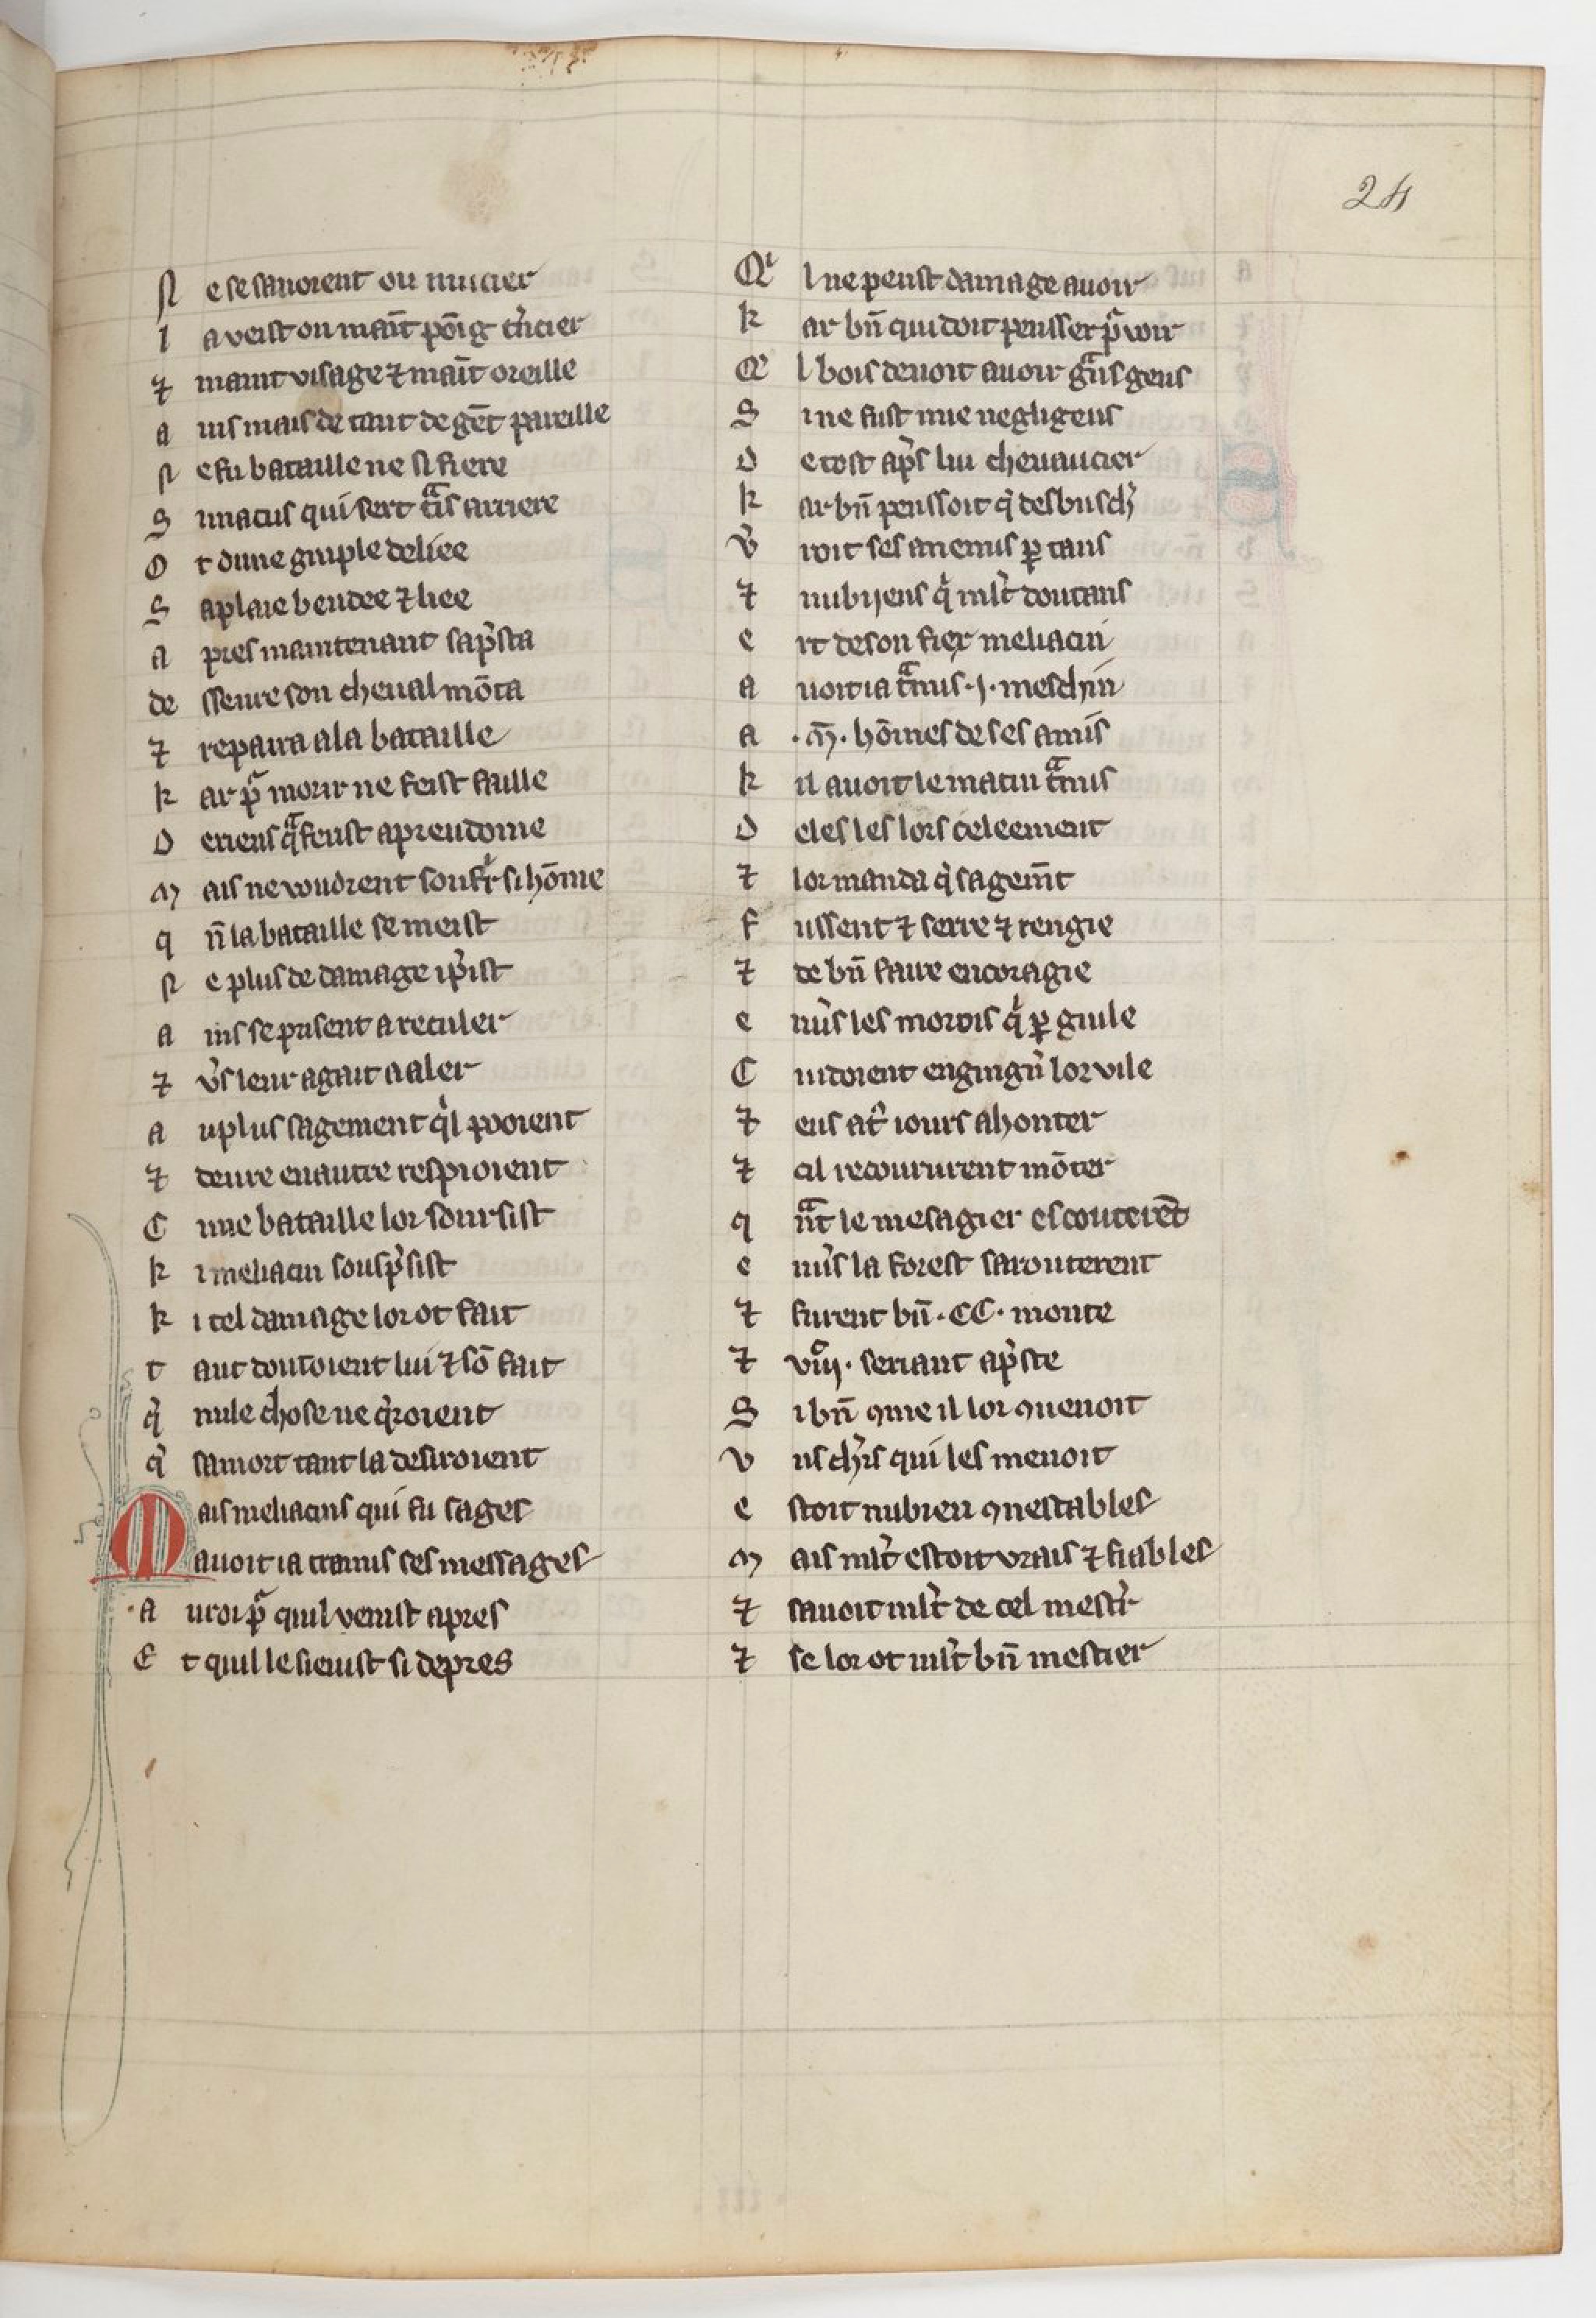 24
N e se sauoient ou mucier
l a veist on mait̄ poīg tᵉncier
⁊ maint visage ⁊ mait̄ oreille
a ins mais de tant de gēt pareille
N e fu bataille ne si fiere
S imacus qui sert tᵃis arriere
O t dune gimple deliee
S a plaie bendee ⁊ liee
a pres maintenant sap̾sta
de sseure son cheual mōta
⁊ repaira a la bataille
k ar pᵃ morir ne feist faille
D e riens qᵃ feust a preudome
M ais ne voudrent soufrⁱr si hōme
q n̄ la bataille se meist
N e plus de damage i p̾ist
a ins se prisent a reculer
⁊ v̾s leur agait a aler
a u plus sagement qⁱl pooient
⁊ deure en autre respioient
C une bataille lor soursist
k i meliacin sousp̾sist
k i tel damage lor ot fait
t ant doutoient lui ⁊ sō fait
q̾ nule chose ne q̾roient
q̾ sa mort tant la desiroient
M ais meliacins qui fu sages
auoit ia tramis ses messages
a u roi pᵃ quil venist apres
E t quil le sieuist si de pres
Qⁱ l ne peust damage auoir
k ar bn̄ qui doit pensser pᵃ voir
Qⁱ l bois deuoit auoir gᵃns gens
S i ne fust mie negligens
D e tost ap̾s lui cheuaucier
k ar bn̄ penssoit q̾ desbusch̾
V̾ roit ses anemis ꝑ tans
⁊ nubijens qⁱ ml̾t doutans
e rt de son fier meliacin
a uoit ia tᵃmis .j. meschin
a .M̄. hōmes de ses amis
k il auoit le matin tᵃmis
D eles les lors celeement
⁊ lor manda q̾ sagem̄t
f ussent ⁊ serre ⁊ rengie
⁊ de bn̄ faire encoragie
e nu̾s les mordis qⁱ ꝑ guile
C uidoient engingn̾ lor vile
⁊ eus at̾ iours ahonter
⁊ cil recoururent mōter
q n̄t le mesagier escouterēt
e nu̾s la forest sarouterent
⁊ furent bn̄ .CC. monte
⁊ viijͦ. seriant ap̾ste
S i bn̄ ꝯme il lor ꝯuenoit
V ns ch̾rs qui les menoit
e stoit nubien ꝯnestables
M ais ml̾t estoit vrais ⁊ fiables
⁊ sauoit ml̾t de cel mest̾r
⁊ se lor ot ml̾t bn̄ mestier